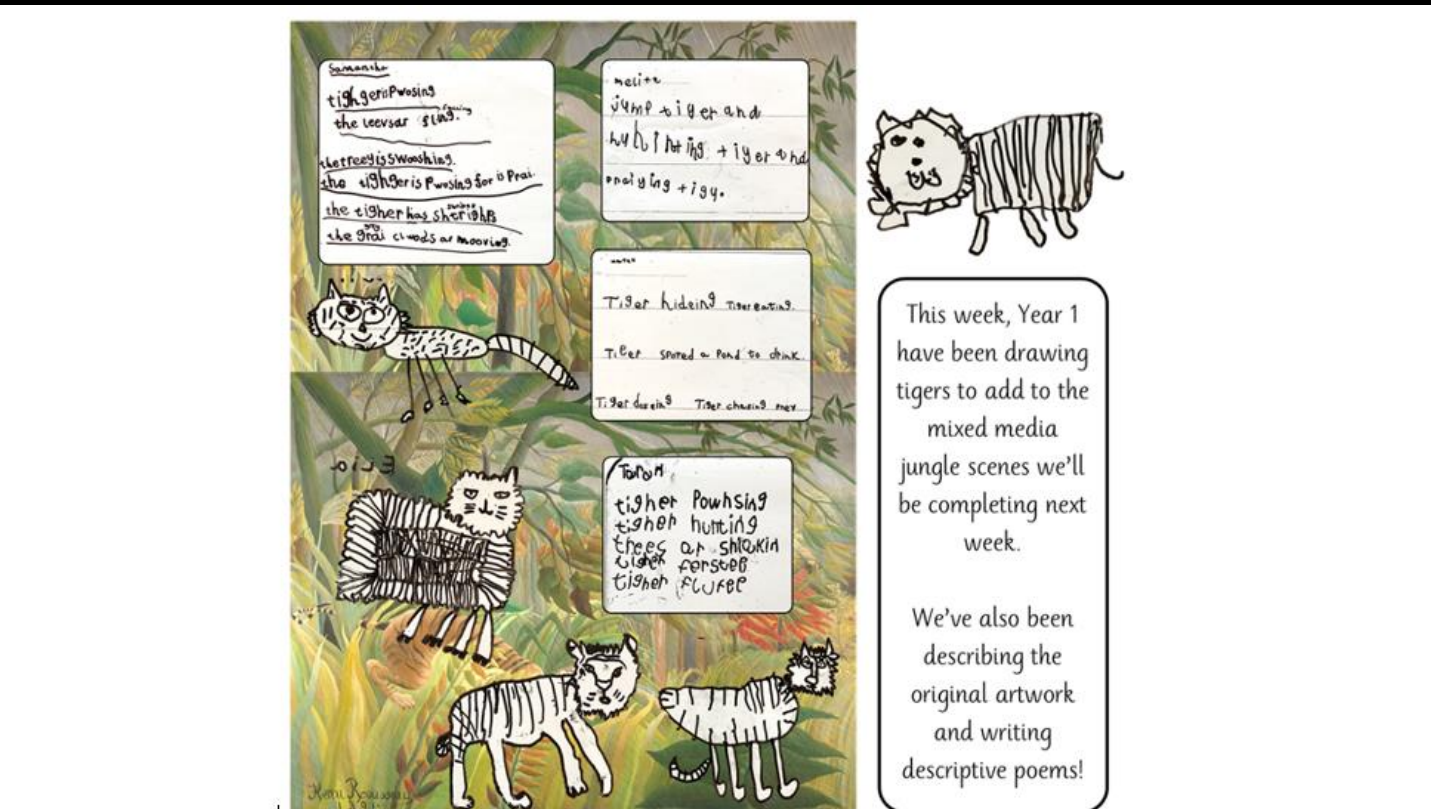 Samantha
tighgerisPwosing
the leevsar
the treeyisSwooshing.
the tighgeris Pwosing for is Prai.
the tigher has
the grai clwods ar mooving.
melita
jump tiger and
tiger and
tigy.
Tiger hideing Tiger eating.
Tiger spoted a Pond to drink.
Tiger Tiger chasing
Taron
tigher Powhsing
tigher hutting
trees ar
tigher
tigher flufee
Ecia
Henri Rousseau
This week, Year 1
have been drawing
tigers to add to the
mixed media
jungle scenes we'll
be completing next
week.
We've also been
describing the
original artwork
and writing
descriptive poems!